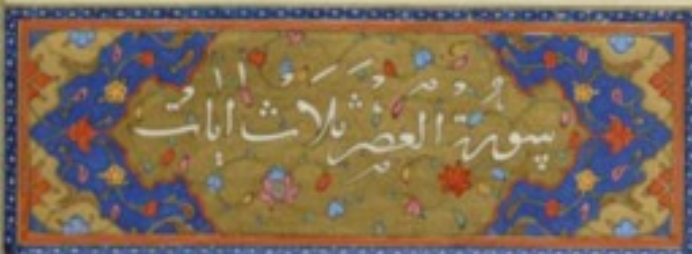 سورة العصر ثلاث ايات